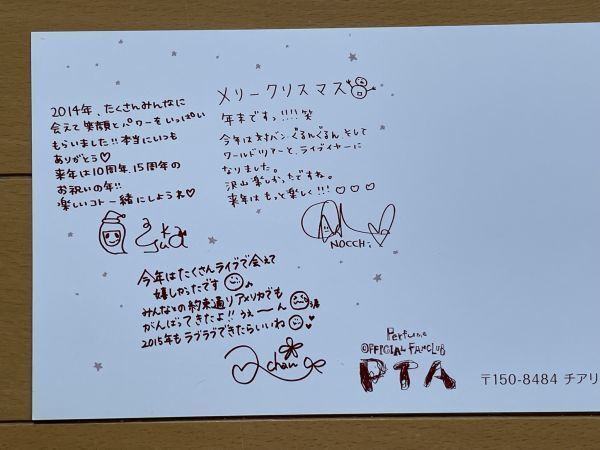 2014年、たくさんみんなに
会えて笑顔とパワーをいっぱい
もらいました!!本当にいつも
ありがとう♡
来年は10周年、15周年の
お祝いの年!!
楽しいコト一緒にしようね♡
メリークリスマス
年末ですっ!!!!笑
今年は対バン、ぐるんぐるん そして
ワールドツアーと、ライブイヤーに
なりました。
沢山楽しかったですね。
来年はもっと楽しく!!! ♡♡♡
NOCCHi
今年はたくさんライブで会えて
嬉しかったです
みんなとの約束通りアメリカでも
がんばってきたよ!! うえーーん
2015年もラブラブできたらいいね
a chan
Perfume
OFFICIAL FANCLUB
PTA
〒150-8484 チアリ